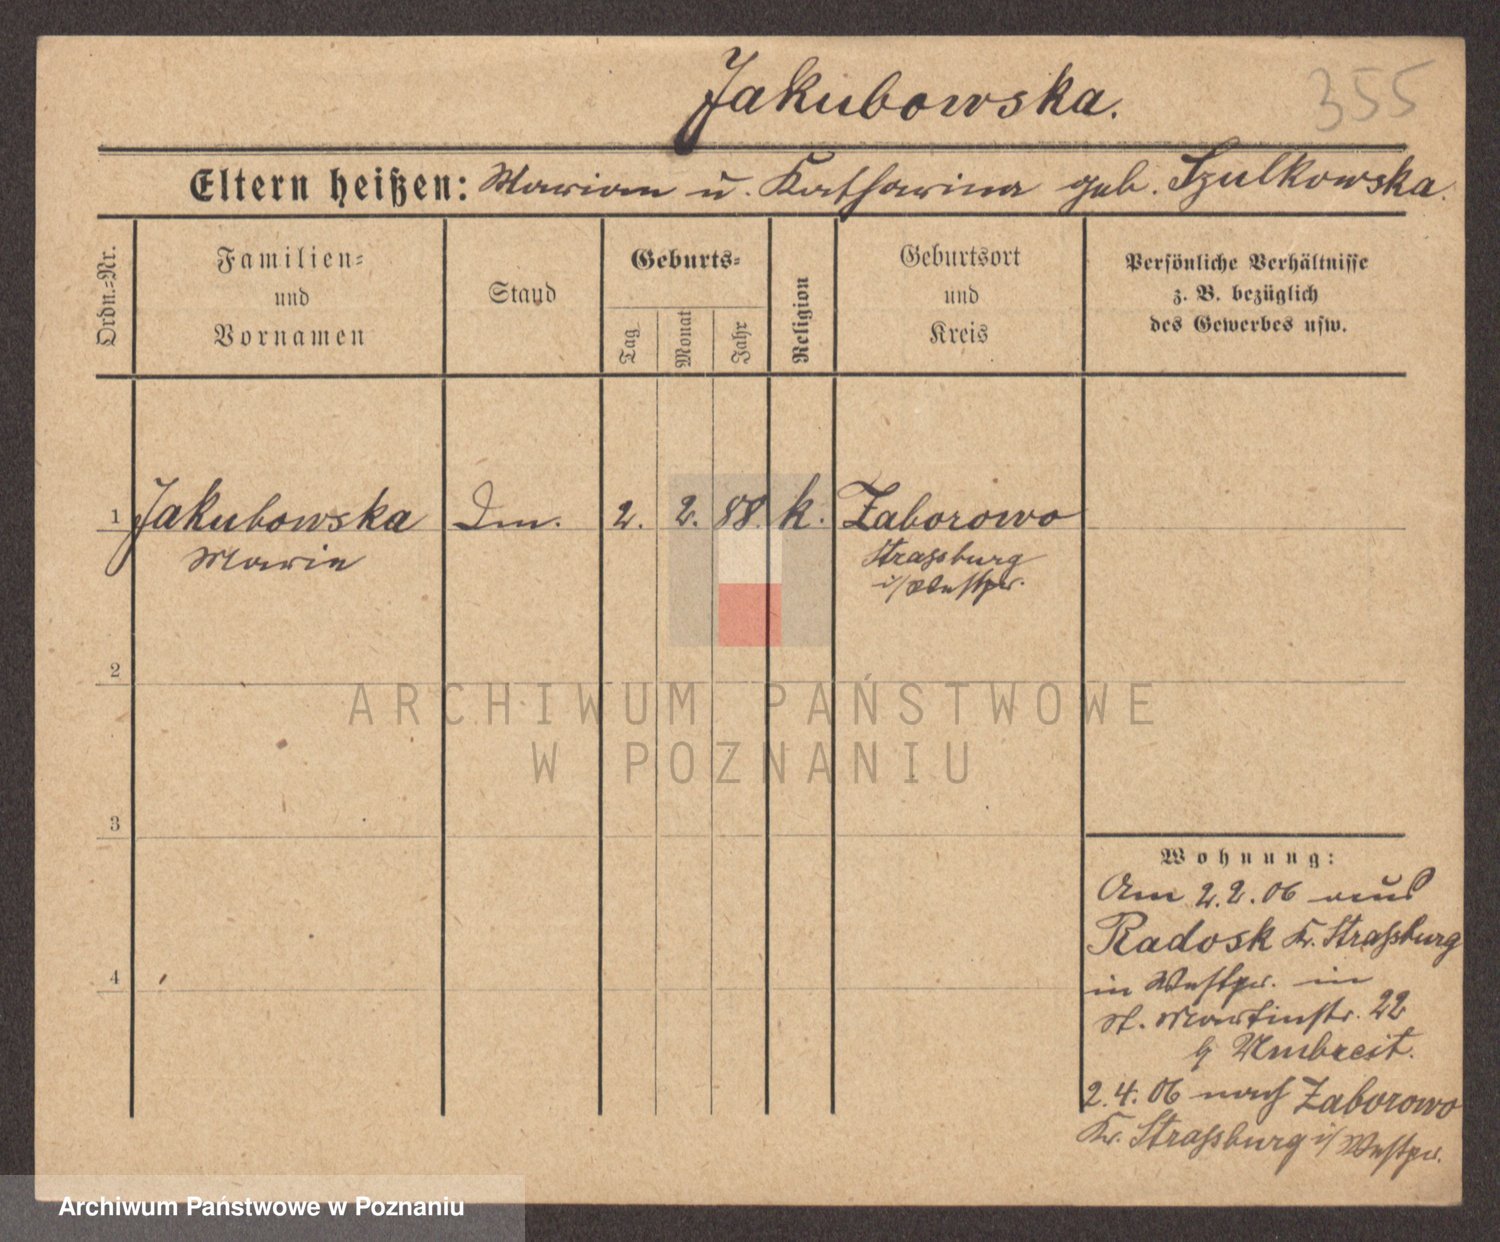 Jakubowska.
355
Eltern heißen: Marian u. Katharina geb. Szulkowska.
Ordn.-Nr.
Familien-
und
Vornamen
Stand
Geburts-
Tag
Monat
Jahr
Religion
Geburtsort
und
Kreis
Persönliche Verhältnisse
z. B. bezüglich
des Gewerbes usw.
1 Jakubowska 2. 2. 88. k. Zaborowo
Marie
Strassburg
i/Westpr.
2
ARCHIWUM PAŃSTWOWE
W POZNANIU
3
Wohnung:
Am 2.2.06 aus
Radosk Kr. Straßburg
in Westpr. in
St. Martinstr. 22
b Umbreit.
2.4.06 nach Zaborowo
Kr. Straßburg i/Westpr.
4
Archiwum Państwowe w Poznaniu